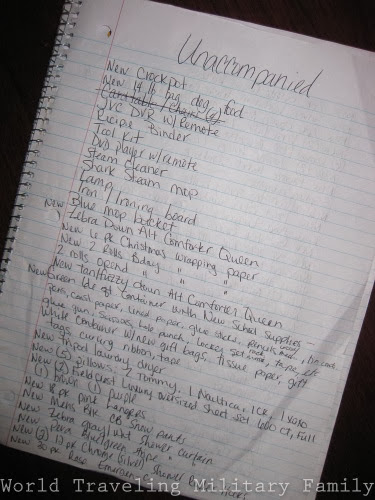 Unaccompanied
New Crockpot
New 14 lb bag dog food
Card table / chairs (2)
JVC DVR w/remote
Recipe Binder
Tool Kit
DVD player w/remote
Steam Cleaner
Shark Steam mop
Lamp
Iron / Ironing board
New Blue mop bucket
Zebra Down Alt Comforter Queen
New 6 pk Christmas wrapping paper
New 2 rolls Bday " "
2 rolls opend " " "
New tan/fuzzy down Alt Comforter Queen
New Green container with New school supplies -
pens, const paper, lined paper, glue sticks, pencils
glue gun, scissors, hole punch, locker set, tape, etc
White container w/ new gift bags, tissue paper, gift
tags, curling ribbon, tape
New Tripod laundry dryer
New (5) Pillows: 2 Tommy, 1 Nautica, 1 CK, 1 xoxo
New (2) Field Crest Luxury oversized sheet set 600 ct, Full
(1) Brown (1) purple
New 18 pk pink hangers
New Mens CB Snow pants
New Zebra gray/wht Shower Curtain
New Blue/green
New (2) 12 pk Chrome (silver) Shower
New 30 pk
World Traveling Military Family